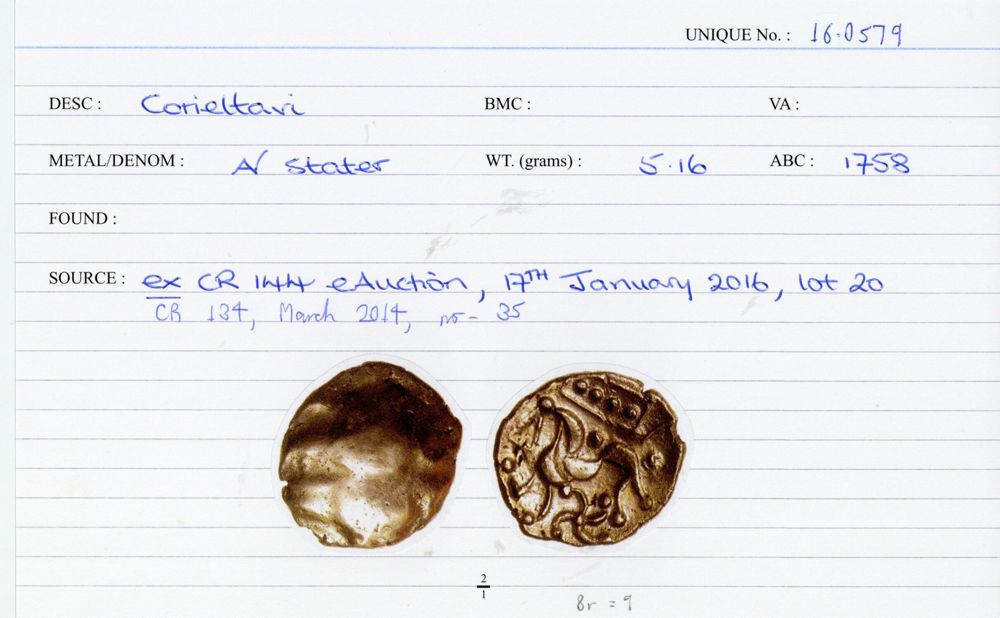 UNIQUE No. : 16.0579
DESC : Corieltavi BMC : VA :
METAL/DENOM : AV Stater WT. (grams) : 5.16 ABC : 1758
FOUND :
SOURCE : ex CR 144 eAuction, 17TH January 2016, lot 20
CR 134, March 2014, no. 35
2
1
8r = 9